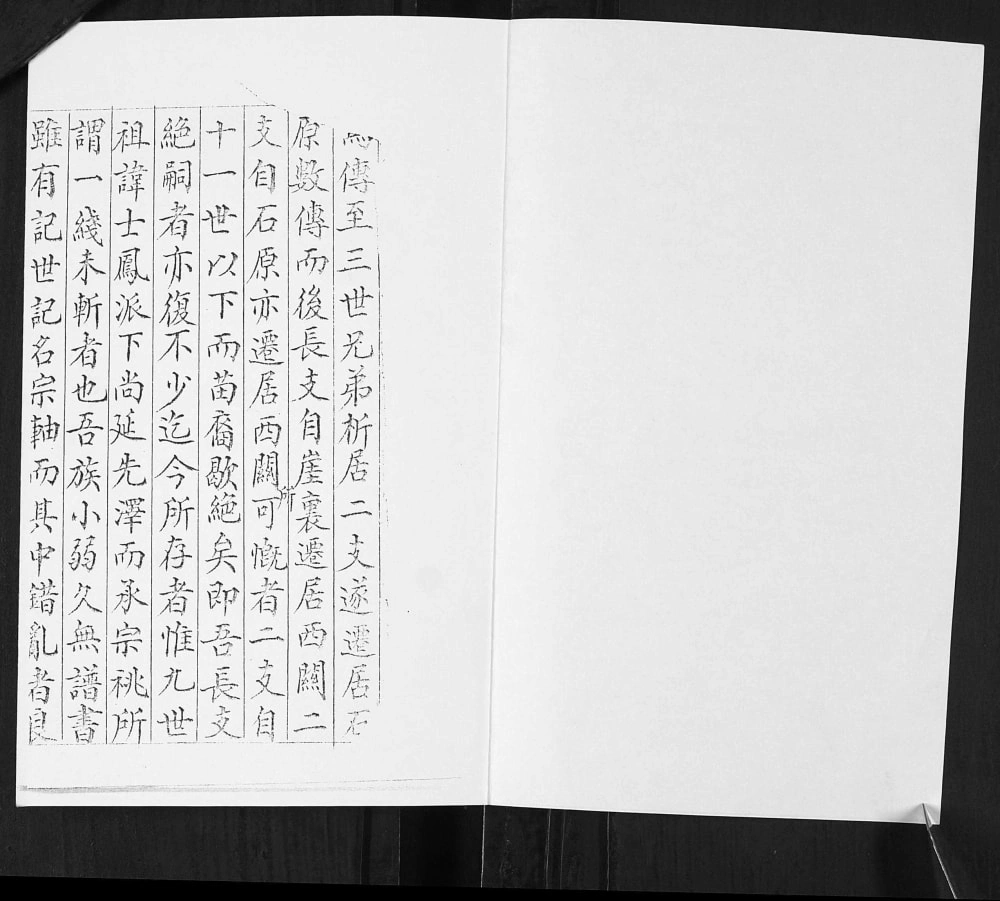 傳至三世兄弟析居二支遂遷居石
原數傳而後長支自崖裏遷居西關二
支自石原亦遷居西關所可慨者二支自
十一世以下而苗裔歇絶矣即吾長支
絶嗣者亦復不少迄今所存者惟九世
祖諱士鳳派下尚延先澤而承宗祧所
謂一綫未斬者也吾族小弱久無譜書
雖有記世記名宗軸而其中錯亂者良